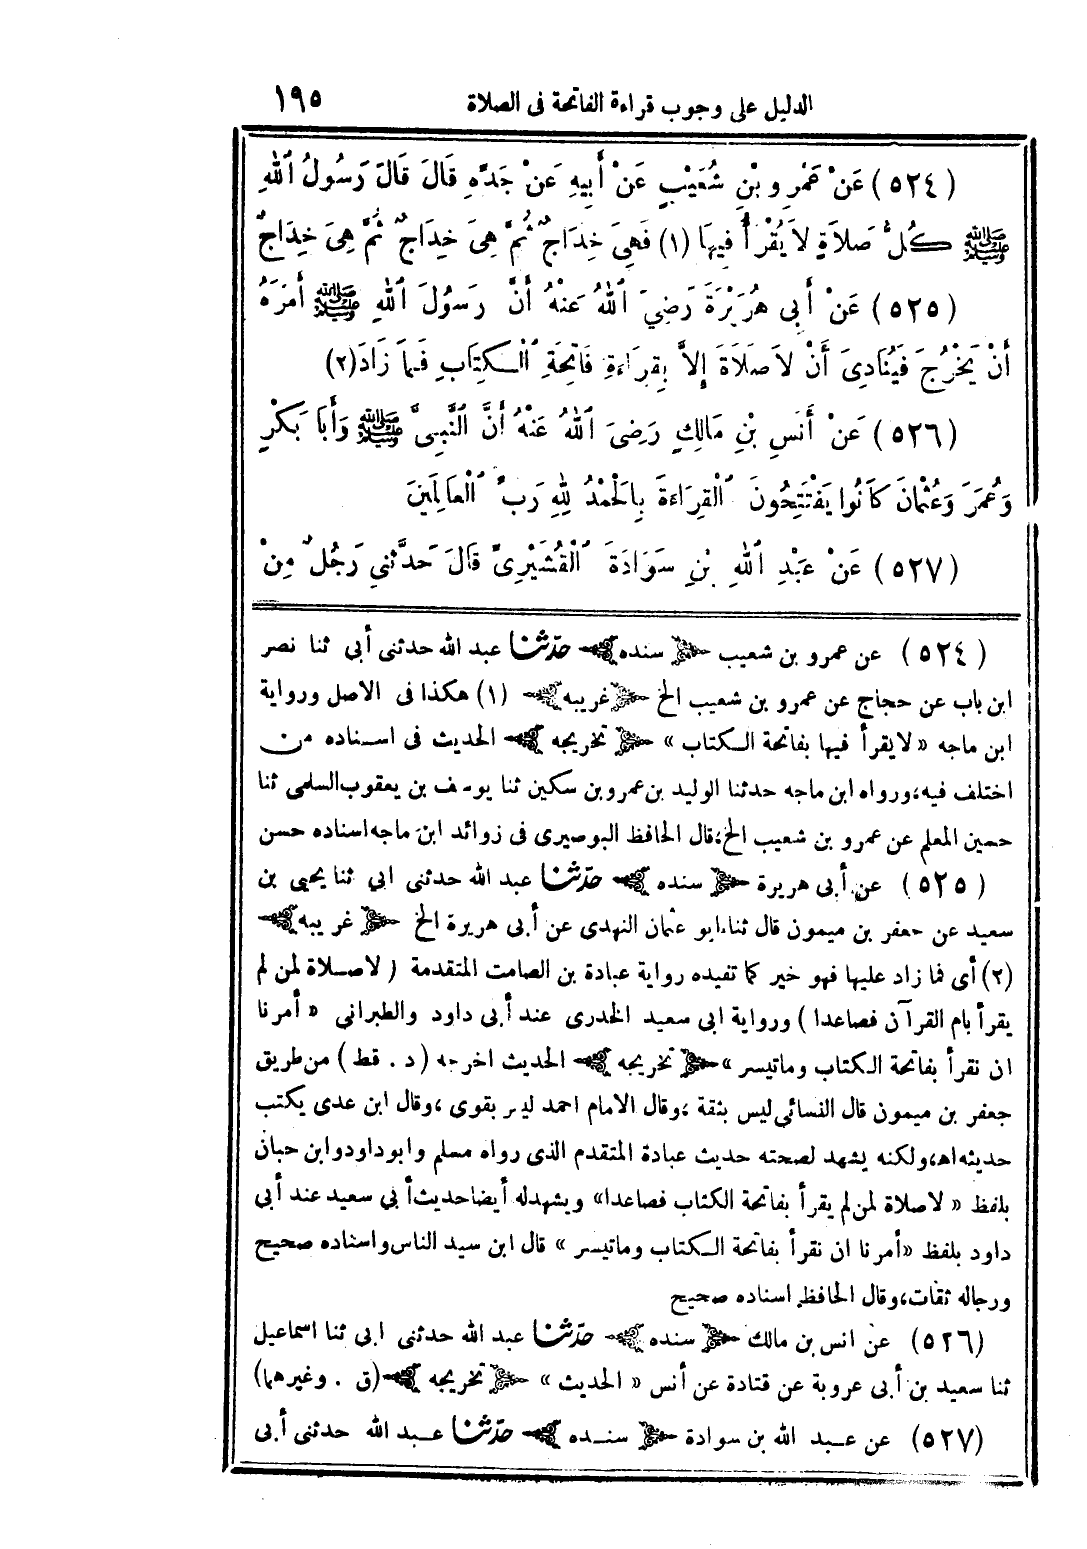 الدليل على وجوب قراءة الفاتحة فى الصلاة ١٩٥
(٥٢٤) عَنْ عَمْرِو بْنِ شُعَيْبٍ عَنْ أَبِيهِ عَنْ جَدِّهِ قَالَ قَالَ رَسُولُ ٱللهِ
ﷺ كُلُّ صَلاَةٍ لاَ يُقْرَأُ فِيهَا (١) فَهِىَ خِدَاجٌ ثُمَّ هِىَ خِدَاجٌ ثُمَّ هِىَ خِدَاجٌ
(٥٢٥) عَنْ أَبِى هُرَيْرَةَ رَضِيَ ٱللهُ عَنْهُ أَنَّ رَسُولَ ٱللهِ ﷺ أَمَرَهُ
أَنْ يَخْرُجَ فَيُنَادِىَ أَنْ لاَ صَلاَةَ إِلاَّ بِقِرَاءَةِ فَاتِحَةِ ٱلْكِتَابِ فَمَا زَادَ (٢)
(٥٢٦) عَنْ أَنَسِ بْنِ مَالِكٍ رَضِىَ ٱللهُ عَنْهُ أَنَّ ٱلنَّبِىَّ ﷺ وَأَبَا بَكْرٍ
وَعُمَرَ وَعُثْمَانَ كَانُوا يَفْتَتِحُونَ ٱلْقِرَاءَةَ بِالْحَمْدُ لِلهِ رَبِّ ٱلْعَالَمِينَ
(٥٢٧) عَنْ عَبْدِ ٱللهِ بْنِ سَوَادَةَ ٱلْقُشَيْرِىِّ قَالَ حَدَّثَنِي رَجُلٌ مِنْ
(٥٢٤) عن عمرو بن شعيب ﴿ سنده ﴾ حدّثنا عبد الله حدثنى أبى ثنا نصر
ابن باب عن حجاج عن عمرو بن شعيب الخ ﴿غريبه﴾ (١) هكذا فى الاصل ورواية
ابن ماجه « لا يقرأ فيها بفاتحة الكتاب » ﴿ تخريجه ﴾ الحديث فى اسناده من
اختلف فيه، ورواه ابن ماجه حدثنا الوليد بن عمرو بن سكين ثنا يوسف بن يعقوب السلمى ثنا
حسين المعلم عن عمرو بن شعيب الخ، قال الحافظ البوصيرى فى زوائد ابن ماجه اسناده حسن
(٥٢٥) عن أبى هريرة ﴿ سنده ﴾ حدّثنا عبد الله حدثنى ابي ثنا يحيى بن
سعيد عن جعفر بن ميمون قال ثنا ابو عثمان النهدى عن أبى هريرة الخ ﴿ غريبه ﴾
(٢) أى فما زاد عليها فهو خير كما تفيده رواية عبادة بن الصامت المتقدمة ( لا صلاة لمن لم
يقرأ بام القرآن فصاعدا ) ورواية ابى سعيد الخدرى عند أبى داود والطبرانى « أمرنا
ان نقرأ بفاتحة الكتاب وما تيسر » ﴿ تخريجه ﴾ الحديث اخرجه ( د . قط ) من طريق
جعفر بن ميمون قال النسائى ليس بثقة ، وقال الامام احمد ليس بقوى ، وقال ابن عدى يكتب
حديثه اهـ، ولكنه يشهد لصحته حديث عبادة المتقدم الذى رواه مسلم وابو داود وابن حبان
بلفظ « لاصلاة لمن لم يقرأ بفاتحة الكتاب فصاعدا» ويشهد له أيضا حديث أبي سعيد عند أبى
داود بلفظ «أمرنا ان نقرأ بفاتحة الكتاب وما تيسر » قال ابن سيد الناس واسناده صحيح
ورجاله ثقات، وقال الحافظ اسناده صحيح
(٥٢٦) عن انس بن مالك ﴿ سنده ﴾ حدّثنا عبد الله حدثنى ابى ثنا اسماعيل
ثنا سعيد بن أبى عروبة عن قتادة عن أنس « الحديث » ﴿ تخريجه ﴾ (ق . وغيرهما)
(٥٢٧) عن عبد الله بن سوادة ﴿ سنده ﴾ حدّثنا عبد الله حدثنى أبى